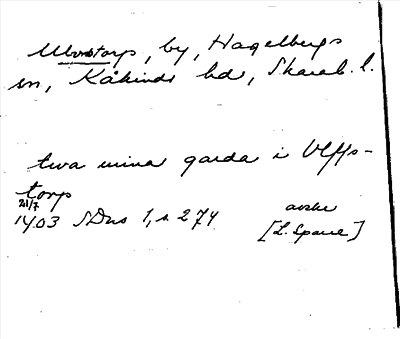 Ulvstorp, by, Hagelbergs
sn, Kåkinds hd, Skarab. l.
twa mina garda i Vlffs-
torp
21/7
1403 SDns 1, s. 274 avskr
[L. Sparre]